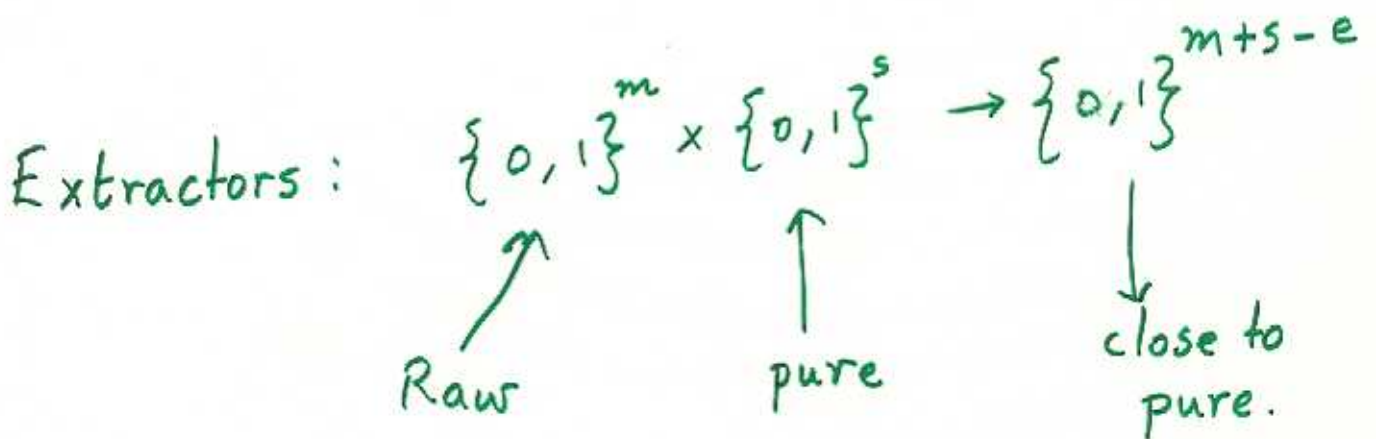 Extractors : {0,1}^m × {0,1}^s → {0,1}^{m+s-e}
Raw pure close to
pure.